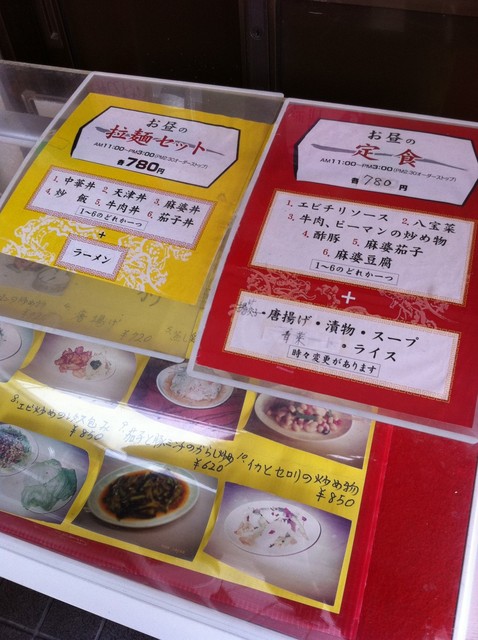 お昼の
拉麺セット
AM11:00〜PM3:00(PM2:30オーダーストップ)
各780円
1. 中華丼 2. 天津丼 3. 麻婆丼
4. 炒 飯 5. 牛肉丼 6. 茄子丼
1〜6のどれか一つ
+
ラーメン
お昼の
定食
AM11:00〜PM3:00(PM2:30オーダーストップ)
各780円
1. エビチリソース 2. 八宝菜
3. 牛肉、ピーマンの炒め物
4. 酢豚 5. 麻婆茄子
6. 麻婆豆腐
1〜6のどれか一つ
+
・唐揚げ・漬物・スープ
・ライス
時々変更があります
唐揚げ
¥720
¥850
¥620
10. イカとセロリの炒め物
¥850